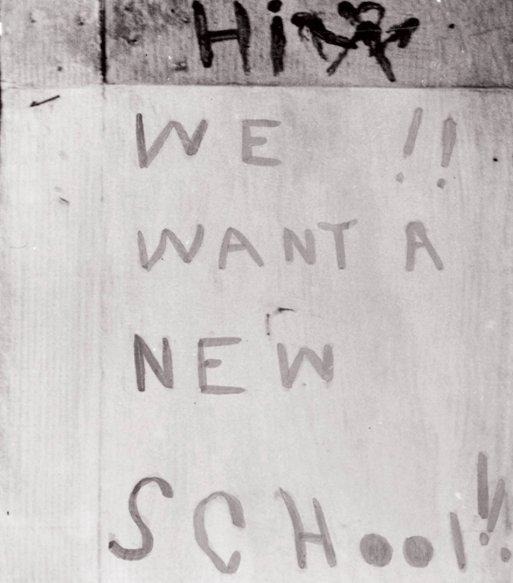 Hi
WE !!
WANT A
NEW
SCHool!!